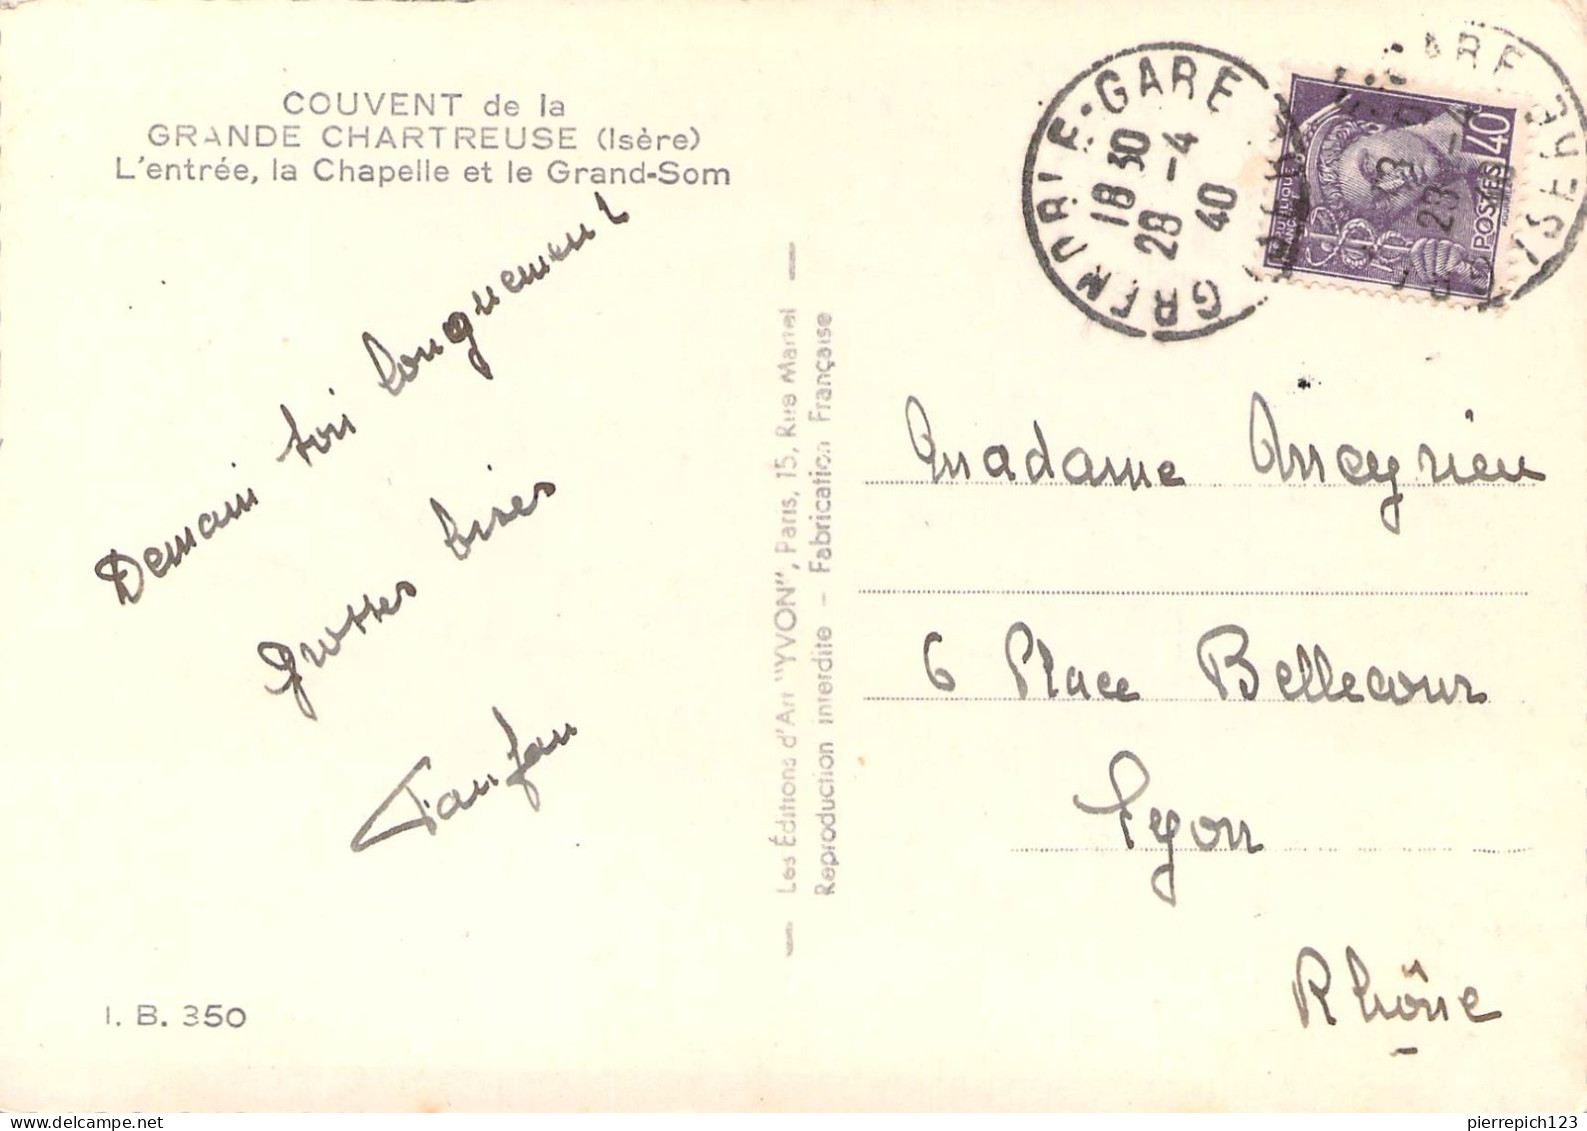 COUVENT de la
GRANDE CHARTREUSE (Isère)
L'entrée, la Chapelle et le Grand-Som
Demain longuement
Grosses bises
Fanfan
I. B. 350
Les Éditions d'Art "YVON", Paris, 15, Rue Martel
Reproduction Interdite – Fabrication Française
GRENOBLE-GARE
18 30
28 -4
40
ISÈRE
40
POSTES
Madame Anseyrieu
6 Place Bellecour
Lyon
Rhône
pierrepich123